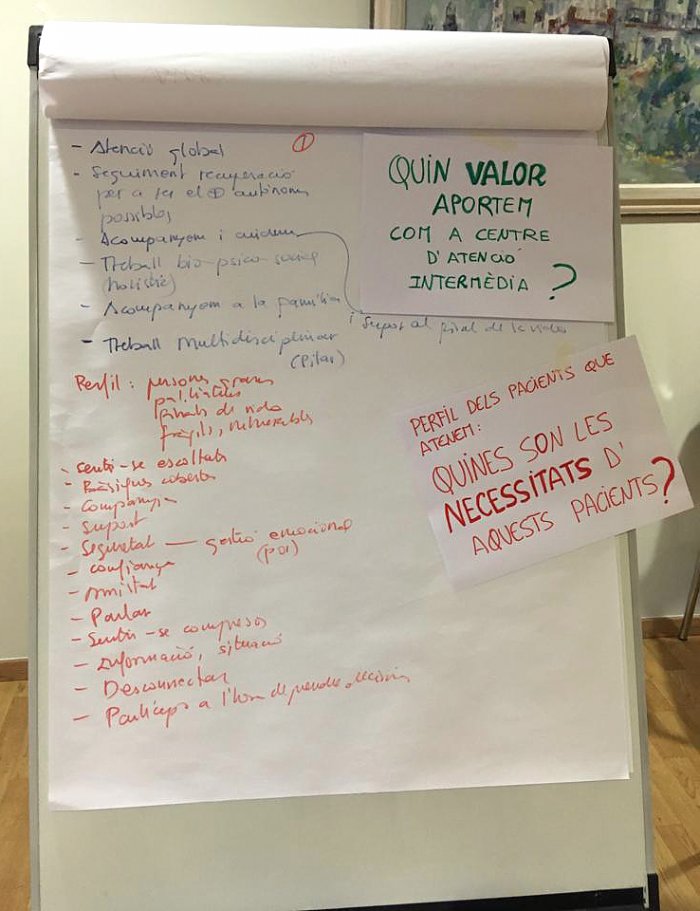 ①
- Atenció global
- Seguiment recuperació
per a ser el ⊕ autònoms
possibles
- Acompanyem i cuidem
- Treball bio-psico-social
(holístic)
- Acompanyem a la família
i suport al final de la vida
- Treball multidisciplinar
(Pilar)
QUIN VALOR
APORTEM
COM A CENTRE
D'ATENCIÓ
INTERMÈDIA ?
Perfil: persones grans
pal·liatius
finals de vida
fràgils, vulnerables
- sentir-se escoltats
- Bàsiques cobertes
- companyia
- suport
- Seguretat — gestió emocional
(por)
- confiança
- Amistat
- Parlar
- Sentir-se compresos
- Informació, situació
- Desconnectar
- Partíceps a l'hora de prendre decisions
PERFIL DELS PACIENTS QUE
ATENEM:
QUINES SON LES
NECESSITATS D'
AQUESTS PACIENTS?